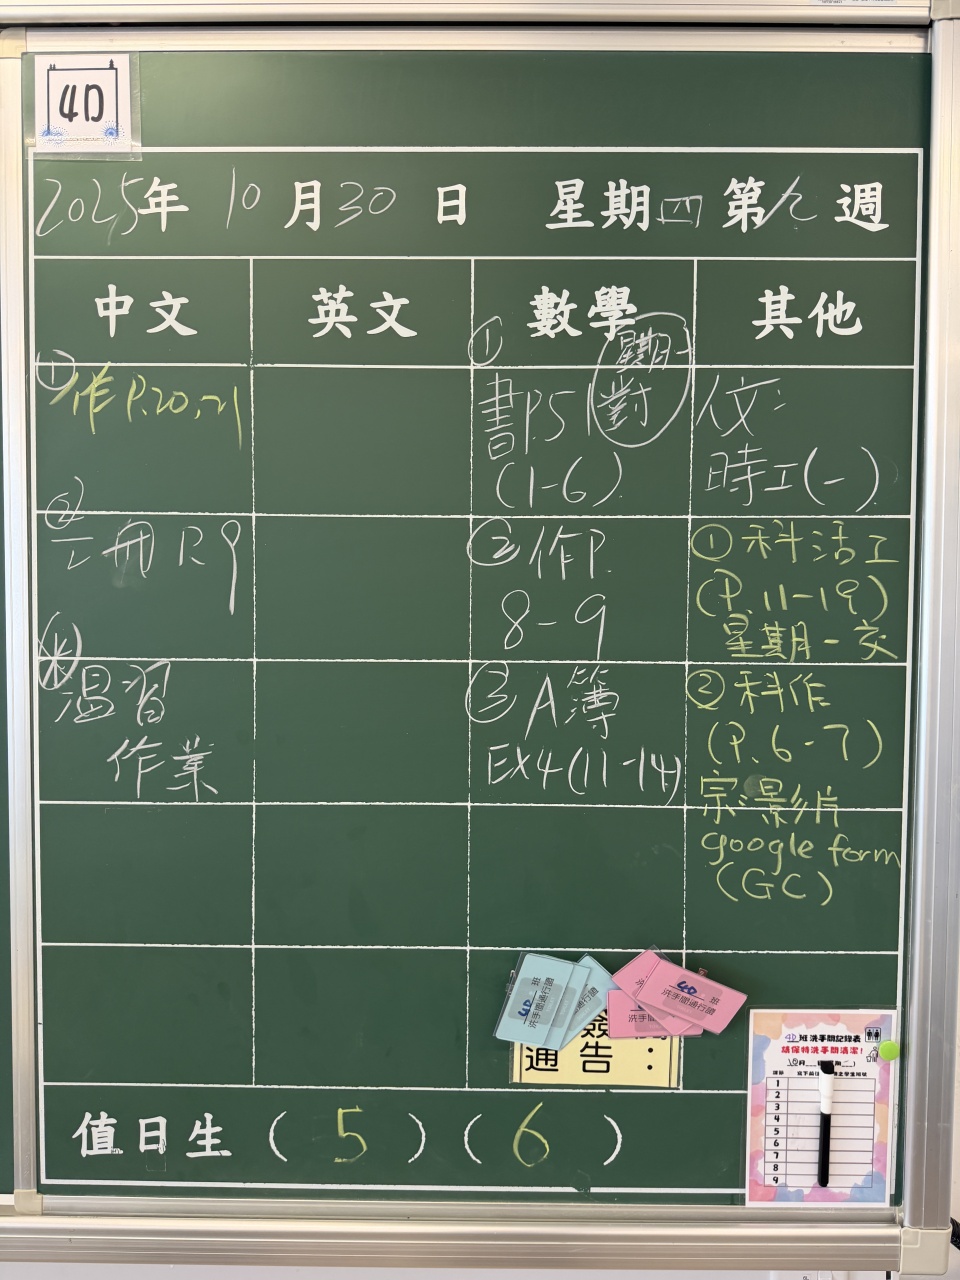 4D
2025年 10月30日 星期四 第九週
中文 英文 數學 其他
① 作 P.20,21
②
冊 P.9
溫習
作業
① 書P.51
(1-6)
星期一
對
② 作P.
8-9
③ A簿
EX4 (11-14)
人文:
時工(一)
① 科活工
(P.11-19)
星期一交
② 科作
(P.6-7)
影片
google form
(GC)
4D 班
洗手間通行證
4D 班
洗手間通行證
通告:
值日生 ( 5 ) ( 6 )
4D班洗手間記錄表
請保持洗手間清潔!
1
2
3
4
5
6
7
8
9